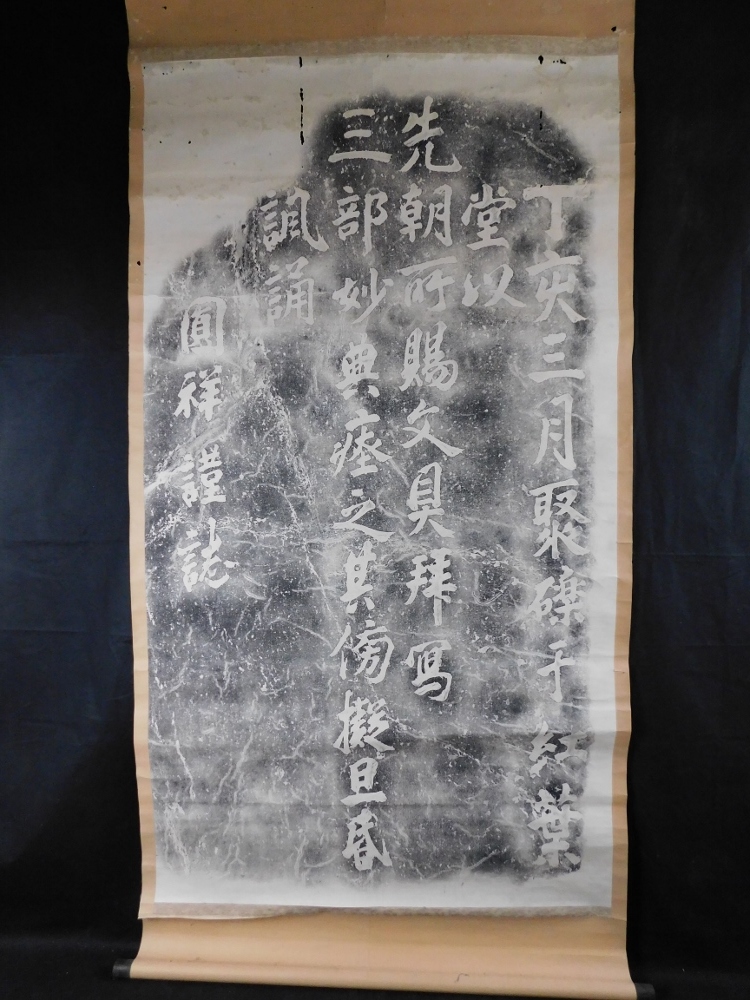 丁亥三月聚礫于紅葉
堂以
先朝所賜文具拜寫
三部妙典瘞之其傍擬旦昏
諷誦
圓祥謹誌